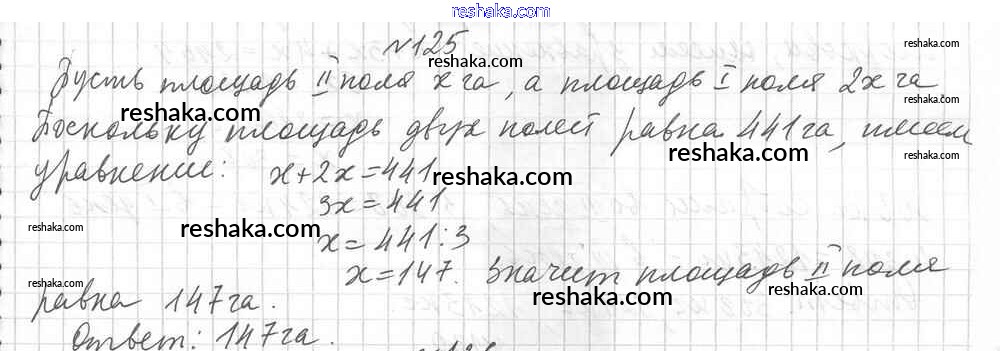 reshaka.com
№125
Пусть площадь II поля x га, а площадь I поля 2x га.
reshaka.com
reshaka.com
reshaka.com
Поскольку площадь двух полей равна 441 га, имеем
reshaka.com
уравнение: x+2x=441
reshaka.com
3x=441
reshaka.com
reshaka.com
x=441:3
x=147. Значит площадь II поля
reshaka.com
reshaka.com
reshaka.com
равна 147 га.
Ответ: 147 га.